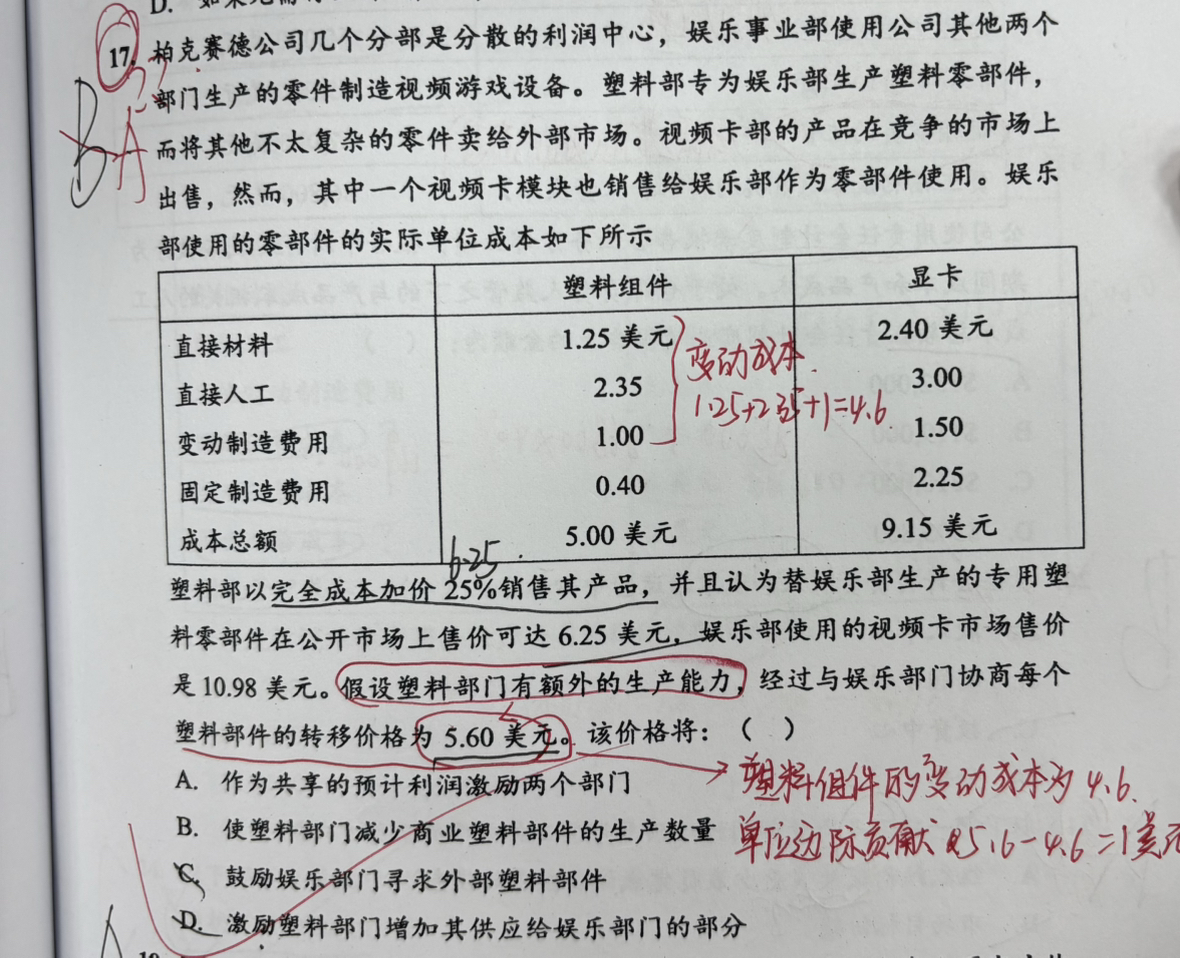 17. 柏克赛德公司几个分部是分散的利润中心，娱乐事业部使用公司其他两个
B A
部门生产的零件制造视频游戏设备。塑料部专为娱乐部生产塑料零部件，
而将其他不太复杂的零件卖给外部市场。视频卡部的产品在竞争的市场上
出售，然而，其中一个视频卡模块也销售给娱乐部作为零部件使用。娱乐
部使用的零部件的实际单位成本如下所示
塑料组件 显卡
直接材料 1.25 美元 2.40 美元
变动成本
直接人工 2.35 3.00
1.25+2.35+1=4.6
变动制造费用 1.00 1.50
固定制造费用 0.40 2.25
成本总额 5.00 美元 9.15 美元
6.25
塑料部以完全成本加价 25%销售其产品，并且认为替娱乐部生产的专用塑
料零部件在公开市场上售价可达 6.25 美元，娱乐部使用的视频卡市场售价
是 10.98 美元。假设塑料部门有额外的生产能力，经过与娱乐部门协商每个
塑料部件的转移价格为 5.60 美元。该价格将：（ ）
A. 作为共享的预计利润激励两个部门
塑料组件的变动成本为 4.6.
B. 使塑料部门减少商业塑料部件的生产数量
单位边际贡献 5.6-4.6=1美元
C. 鼓励娱乐部门寻求外部塑料部件
D. 激励塑料部门增加其供应给娱乐部门的部分